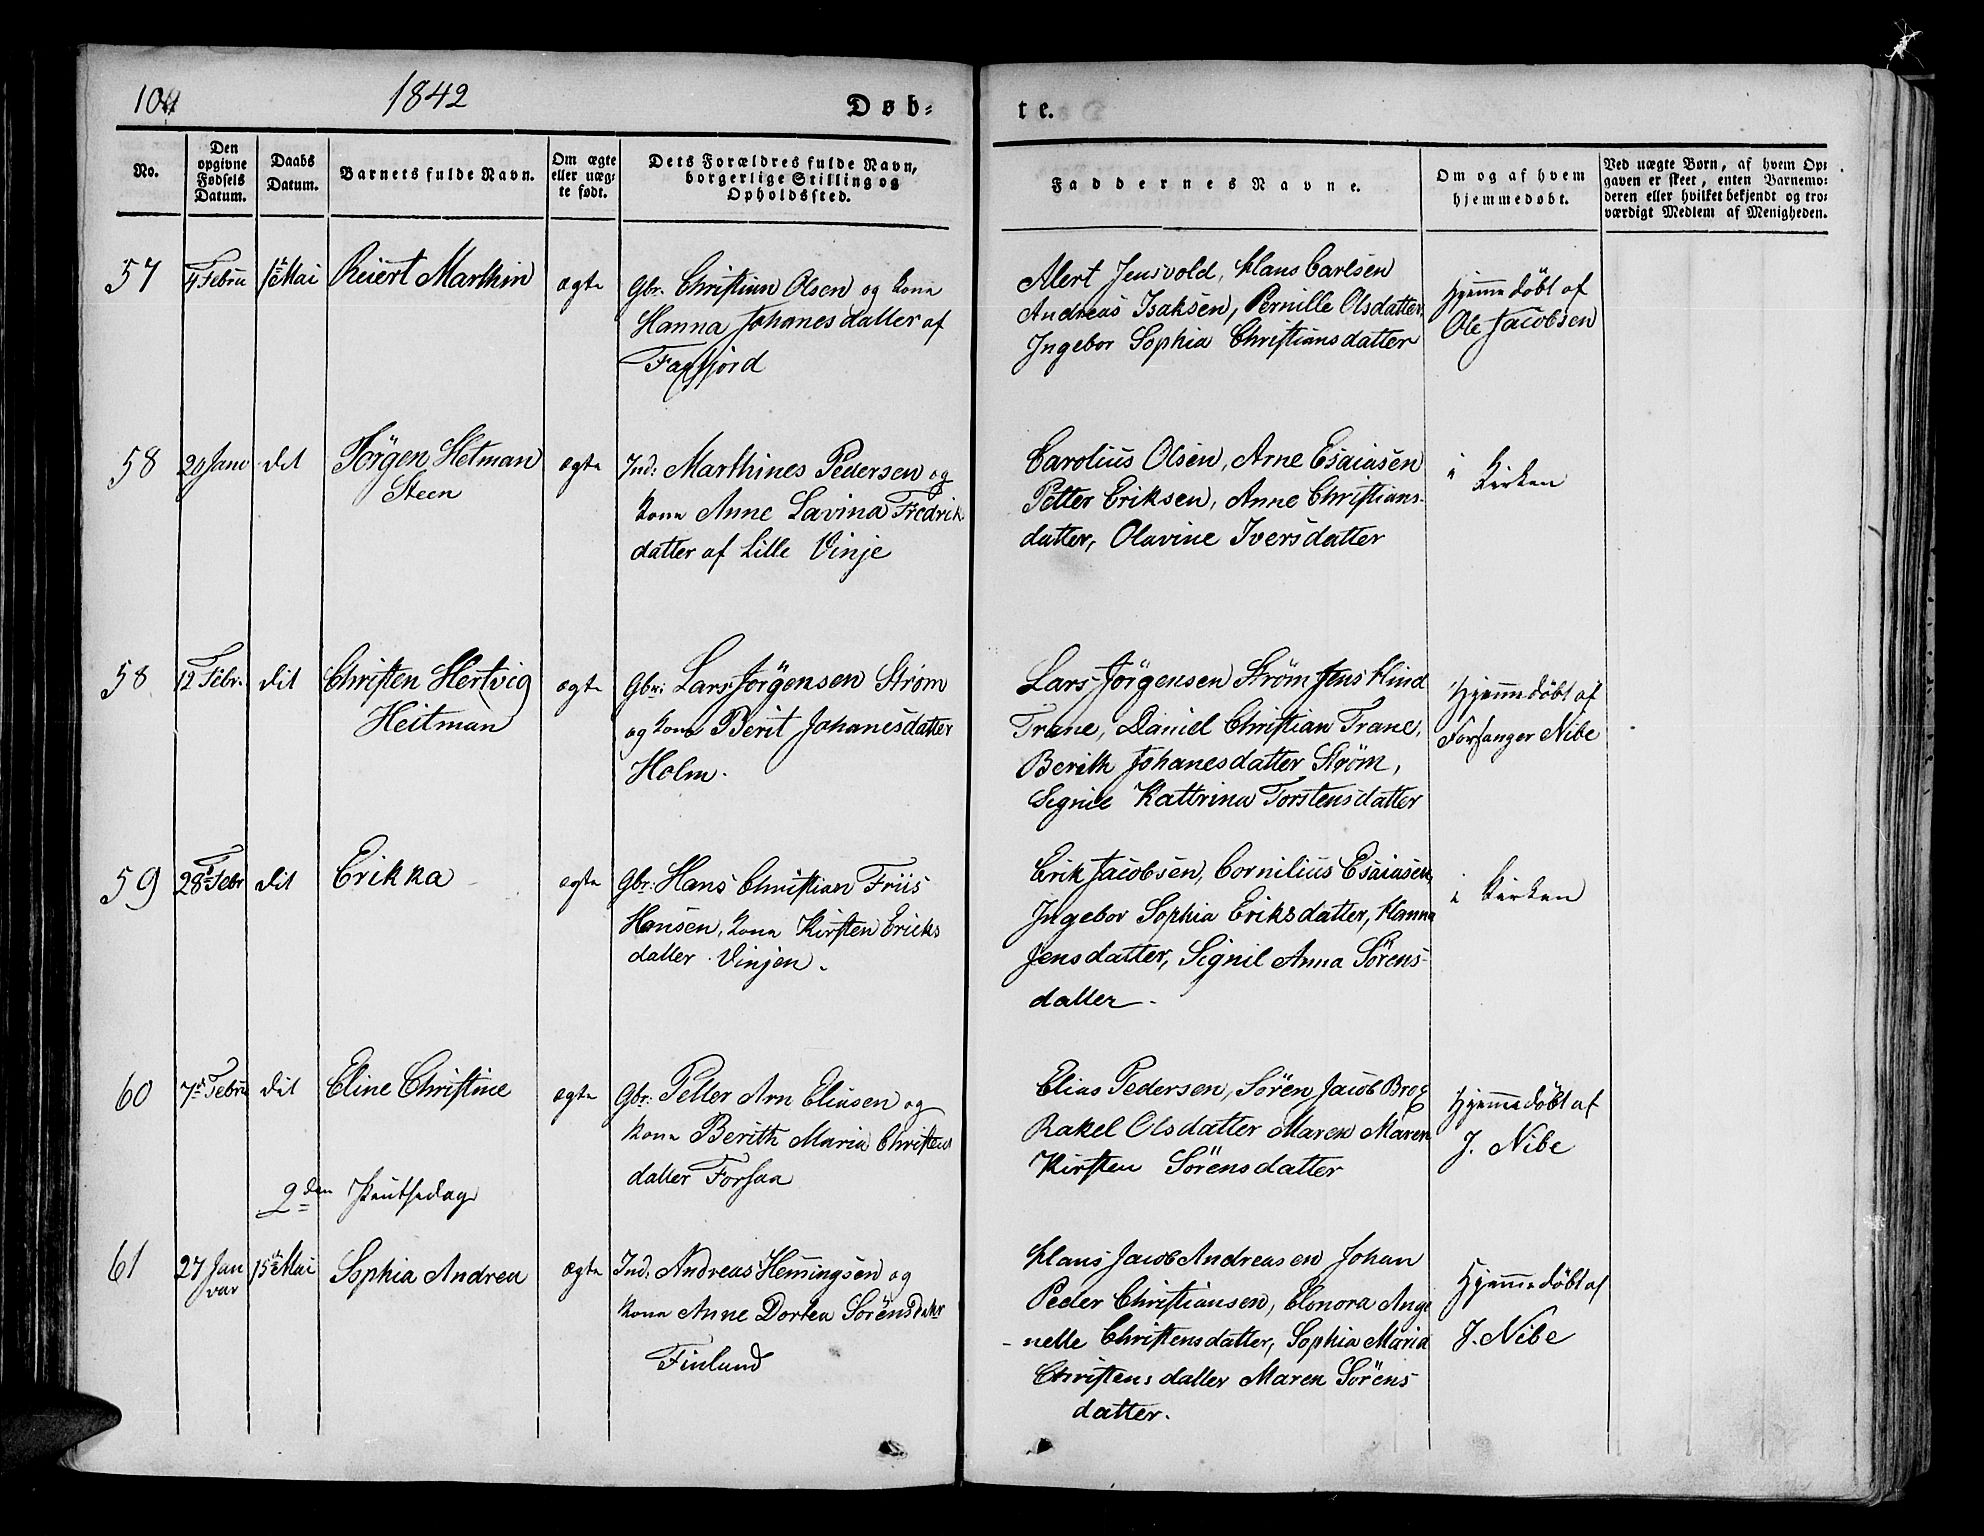 1842
Døb=
te.
No.
Den opgivne Fødsels Datum.
Daabs Datum.
Barnets fulde Navn.
Om ægte eller uægte født.
Dets Forældres fulde Navn, borgerlige Stilling og Opholdssted.
Faddernes Navne.
Om og af hvem hjemmedøbt.
Ved uægte Børn, af hvem Op-
gaven er skeet, enten Barnemo-
deren eller hvilket bekjendt og tro-
værdigt Medlem af Menigheden.
57 4 Febru 1ste Mai Reiert Marthin ægte
Gbr. Christian Olsen og kona
Hanna Johanesdatter af
Fagfjord
Alert Jensvold, Klaus Carlsen
Andreas Isaksen, Pernille Olsdatter
Ingebor Sophia Christiansdatter
Hjemmedøbt af
Ole Jacobsen
58 20 Janu dit Jörgen Hetman
Steen
ægte
Ind: Marthines Pedersen og
kona Anne Lavina Fredrik
datter af Lille Vinje
Carolius Olsen, Arne Esaiasen
Petter Eriksen, Anne Christians-
datter, Olavine Iversdatter
i Kirken
58 12 Febr. dit Christen Hertvig
Heitman
ægte
Gbr: Lars Jörgensen Strøm
og kona Berit Johanesdatter
Holm.
Lars Jörgensen Strøm Jens Hind
Trane, Daniel Christian Trane,
Berith Johanesdatter Strøm,
Signie Kattrina Torstensdatter
Hjemmedøbt af
Forsanger Nibe
59 28 Febr dit Erikka ægte
Gbr: Hans Christian Friis
Hansen, kona Kirsten Ericks
datter Vinjen.
Erik Jacobsen, Cornilius Esaiasen,
Ingebor Sophia Eriksdatter, Hanna
Jensdatter, Signil Anna Sörens-
datter.
i Kirken
60 7d Febru dit Eline Christine ægte
Gbr: Petter Arn Eliasen og
kona Berith Maria Christens
datter Forsaa
Elias Pedersen, Sören Jacob Brox
Rakel Olsdatter Maren Maren
Kirsten Sörensdatter
Hjemmedøbt af
J. Nibe
2den Pentsedag
61 27 Jan
var
15de Mai Sophia Andrea ægte
Ind: Andreas Hemingsen og
kona Anne Dortea Sörensdatr
Finland
Klaus Jacob Andreasen Johan
Peder Christiansen, Elonora Ange
nelle Christensdatter, Sophia Maria
Christensdatter Maren Sörens
datter.
Hjemmedøbt af
J. Nibe